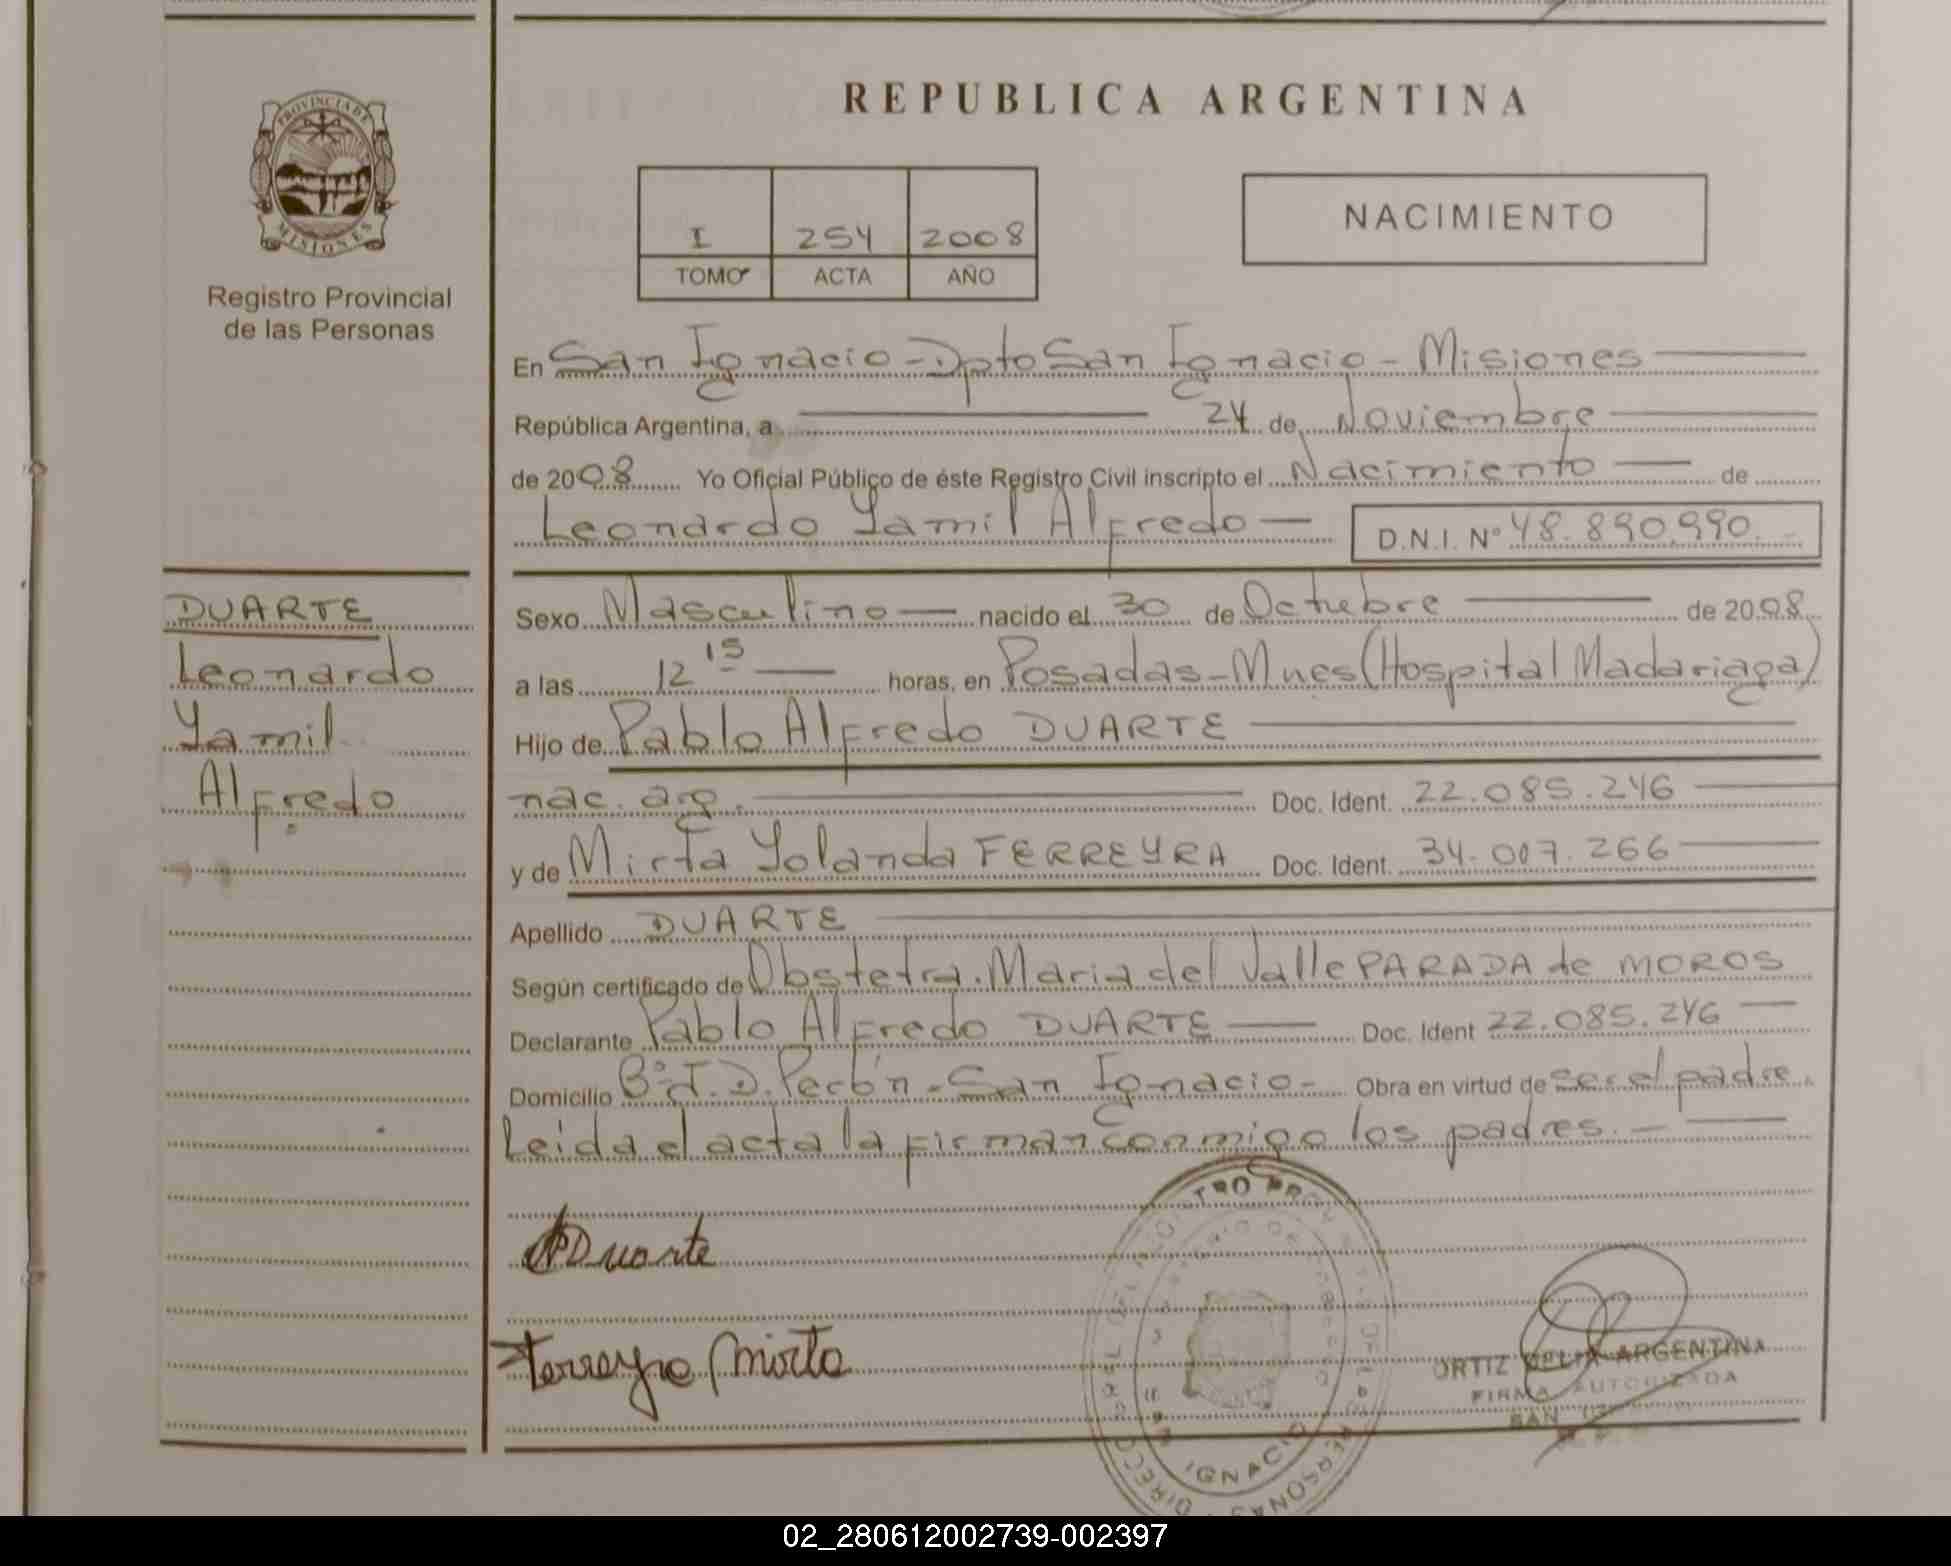 REPUBLICA ARGENTINA
PROVINCIA DE
MISIONES
Registro Provincial
de las Personas
I 254 2008
TOMO ACTA AÑO
NACIMIENTO
En San Ignacio - Dpto San Ignacio - Misiones
República Argentina, a 24 de Noviembre
de 2008 Yo Oficial Público de éste Registro Civil inscripto el Nacimiento de
Leonardo Yamil Alfredo D.N.I. Nº 48.890.990
DUARTE
Leonardo
Yamil
Alfredo
Sexo Masculino nacido el 30 de Octubre de 2008
a las 12 15 horas, en Posadas - Mnes (Hospital Madariaga)
Hijo de Pablo Alfredo DUARTE
nac. arg. Doc. Ident. 22.085.246
y de Mirta Yolanda FERREYRA Doc. Ident. 34.007.266
Apellido DUARTE
Según certificado de Obstetra. Maria del Valle PARADA de MOROS
Declarante Pablo Alfredo DUARTE Doc. Ident 22.085.246
Domicilio Bº J. D. Perón - San Ignacio - Obra en virtud de ser el padre.
Leida el acta la firman conmigo los padres. -
Duarte
Ferreyra Mirta
IGNACIO
ORTIZ DELIA ARGENTINA
FIRMA AUTORIZADA
SAN
02_280612002739-002397